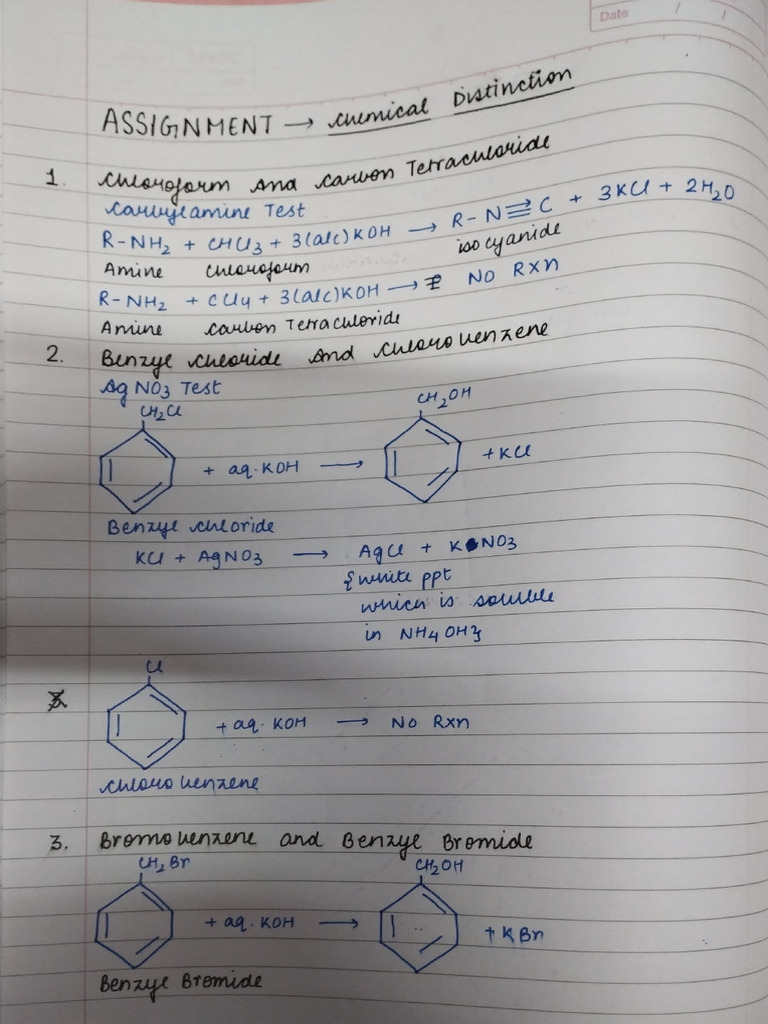 Date / /
ASSIGNMENT → Chemical Distinction
1. Chloroform And Carbon Tetrachloride
Carbylamine Test
R-NH2 + CHCl3 + 3(alc)KOH → R-N≡C + 3KCl + 2H2O
Amine Chloroform isocyanide
R-NH2 + CCl4 + 3(alc)KOH → No Rxn
Amine Carbon Tetrachloride
2. Benzyl Chloride And Chlorobenzene
AgNO3 Test
CH2Cl CH2OH
+ aq. KOH → + KCl
Benzyl Chloride
KCl + AgNO3 → AgCl + KNO3
{white ppt
which is soluble
in NH4OH}
Cl
+ aq. KOH → No Rxn
Chlorobenzene
3. Bromobenzene and Benzyl Bromide
CH2Br CH2OH
+ aq. KOH → + KBr
Benzyl Bromide